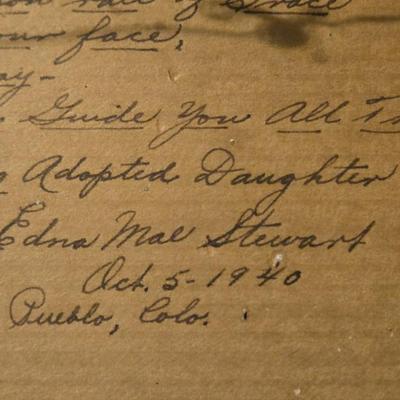 of Grace
your face,
Guide You All
Adopted Daughter
Edna Mae Stewart
Oct. 5-1940
Pueblo, Colo.